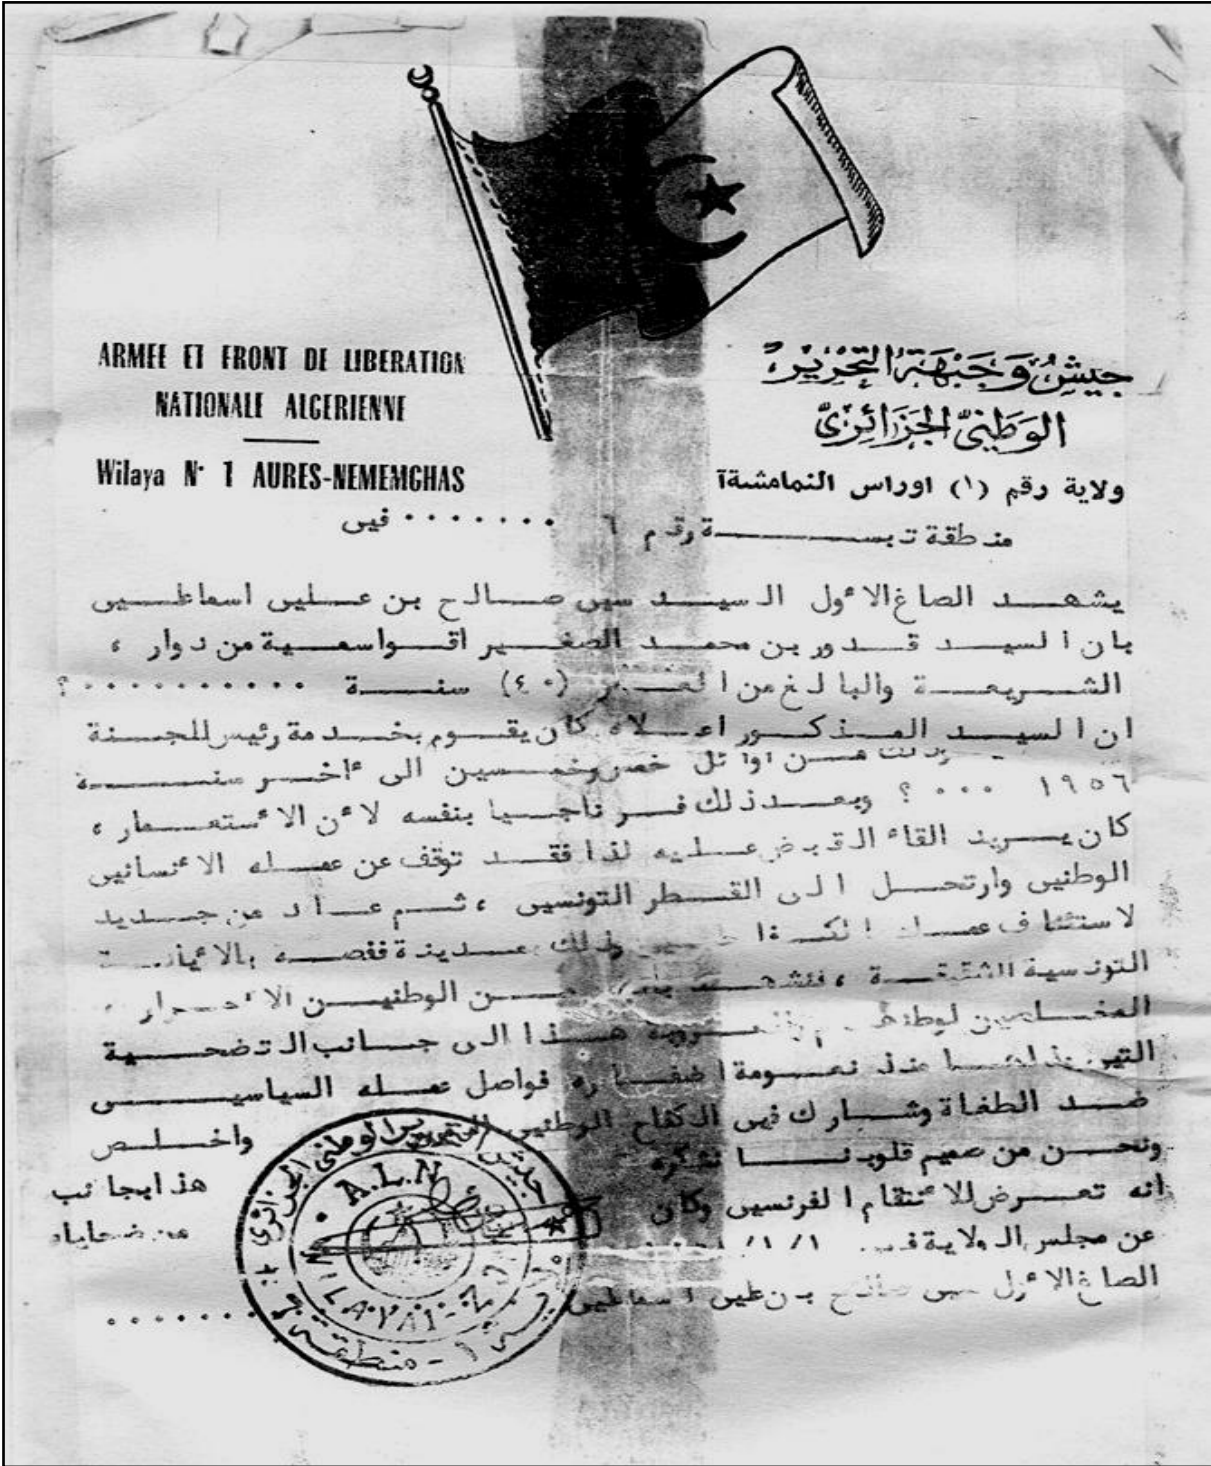 ARMEE ET FRONT DE LIBERATION
NATIONALE ALGERIENNE
Wilaya N· 1 AURES-NEMEMCHAS
جيش وجبهة التحرير
الوطني الجزائري
ولاية رقم (١) اوراس النمامشة
منطقة تبســـة رقم ٦ ........ في
يشهد الصاغ الأول السيد سي صالح بن علي اسماعلي
بان السيد قدور بن محمد الصغير اقواسمية من دوار ،
الشريعة والبالغ من العمر (٤٠) سنة ...........؟
ان السيد المذكور اعلاه كان يقوم بخدمة رئيس للجنة
وذلك من اوائل خمس وخمسين الى ءاخر سنة
١٩٥٦ ...؟ وبعد ذلك فر ناجيا بنفسه لأن الأستعمار ،
كان يريد القاء القبض عليه لذا فقد توقف عن عمله الأنساني
الوطني وارتحل الى القطر التونسي ، ثم عاد من جديد
لاستئناف عمله
التونسية الشقيقة ، فنشهد من الوطنيين الأحرار ،
المخلصين هذا الى جانب التضحية
التي منذ نعومة اظفاره فواصل عمله السياسي
ضد الطغاة وشارك في الكفاح الوطني واخلص
ونحن من صميم قلوبنا نشكره
انه تعرض للأنتقام الفرنسي وكان من ضحاياه
عن مجلس الولاية
الصاغ الأول سي صالح بن علي اسماعلي ........
جيش التحرير الوطني الجزائري
A.L.N
WILAYA 1
منطقة